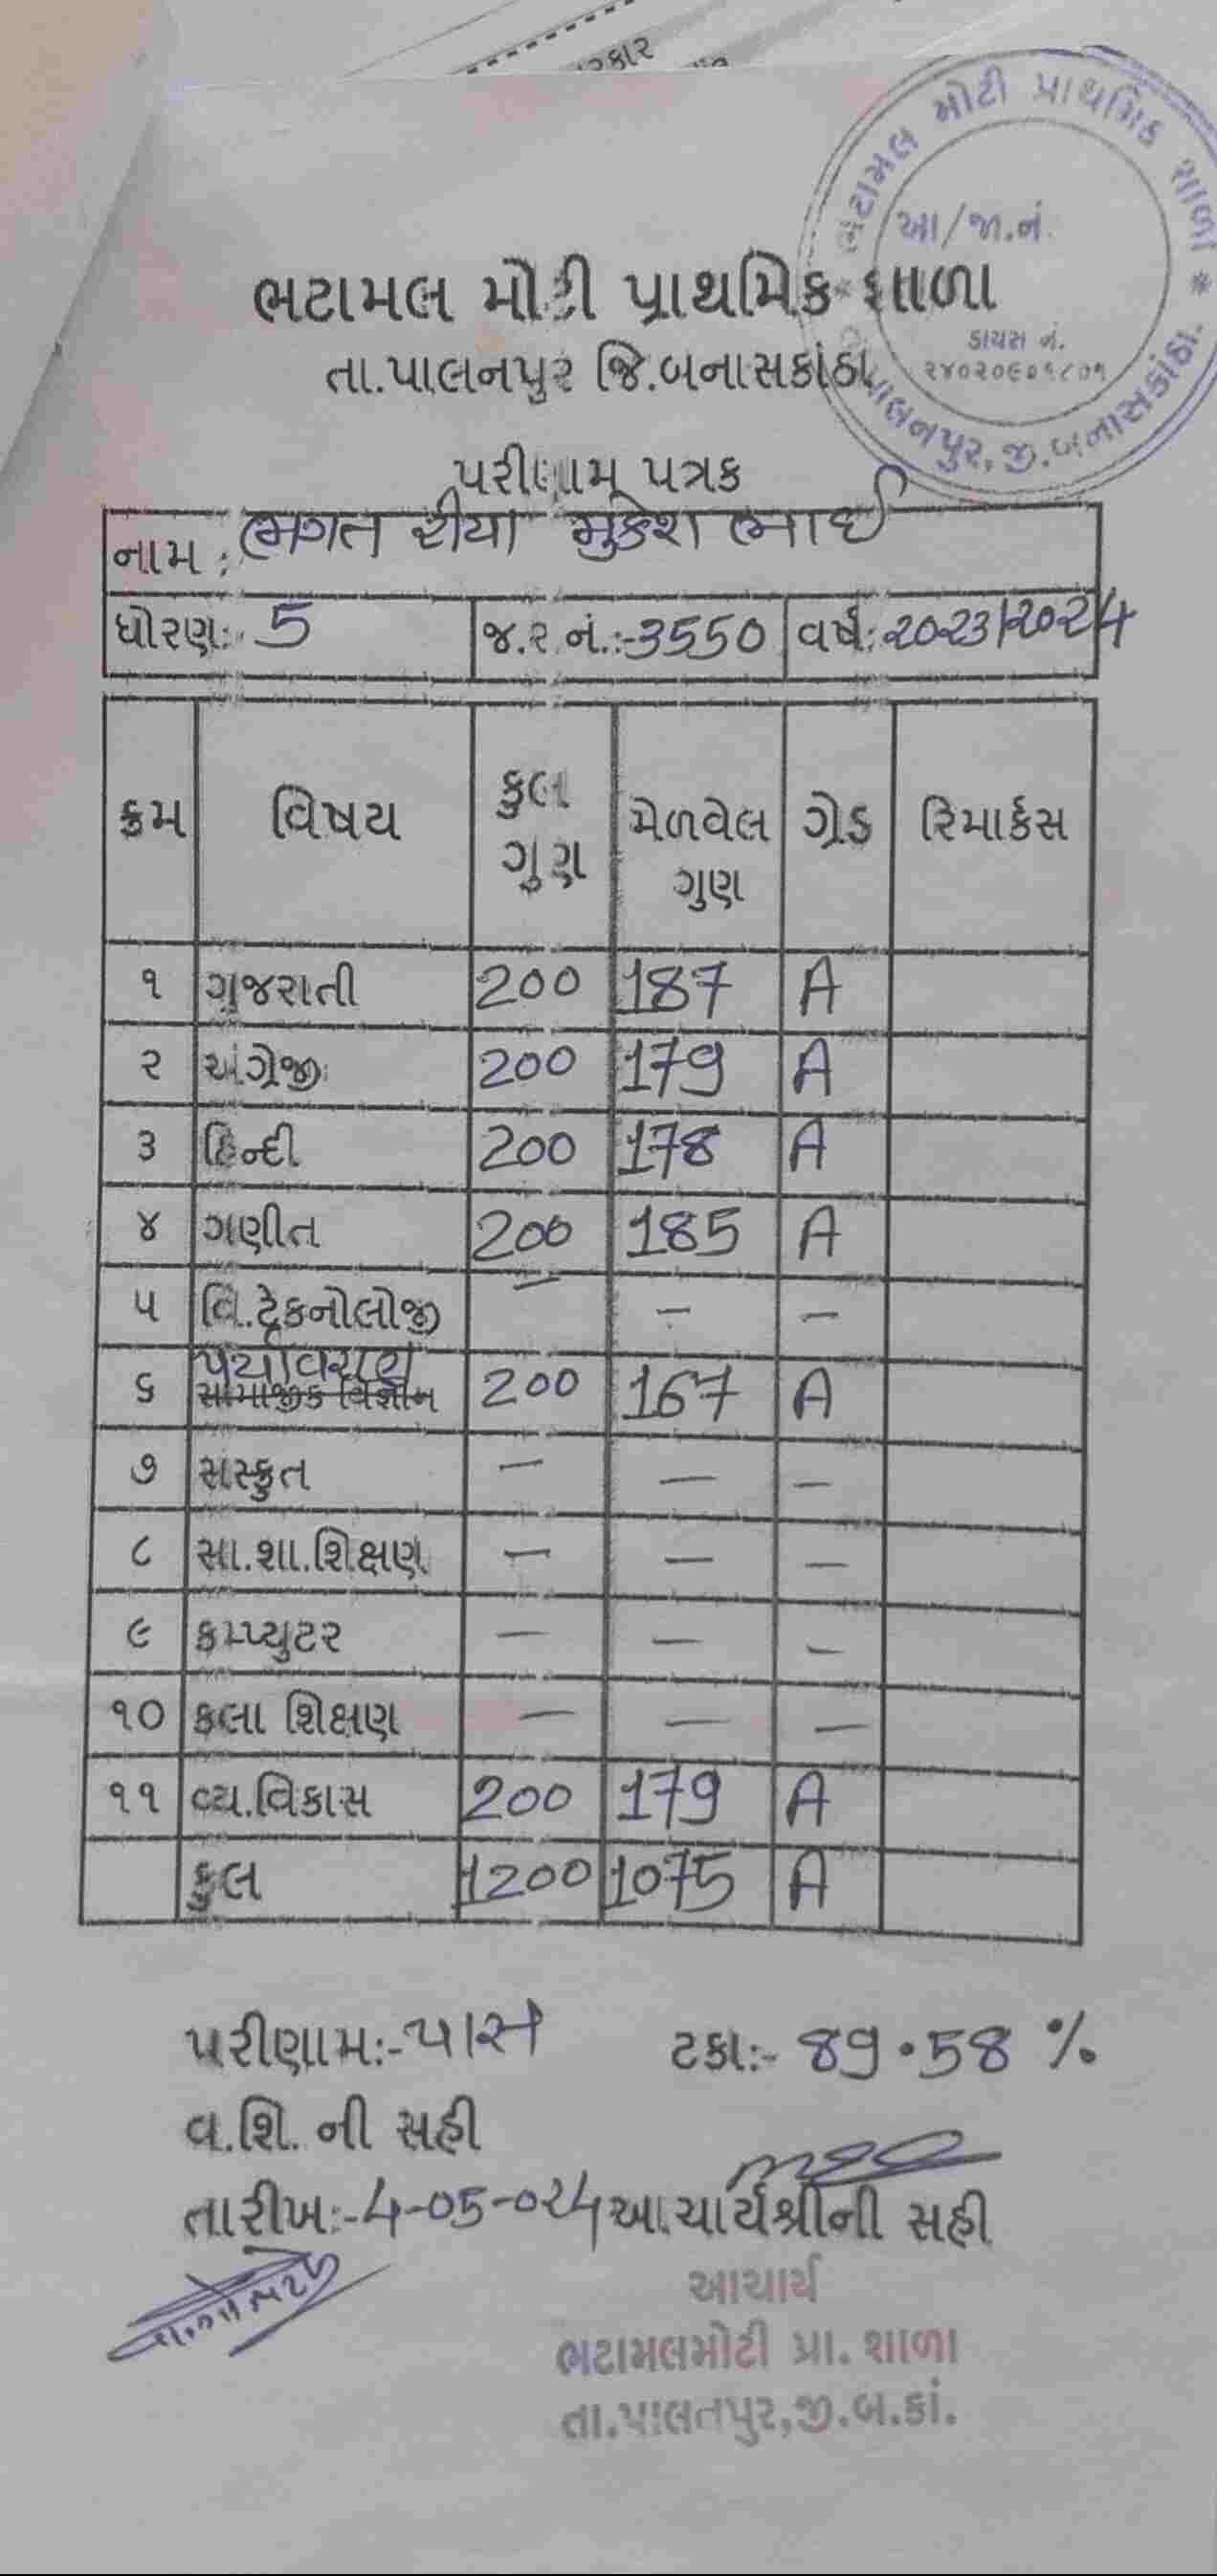 રકાર
ભટામલ મોટી પ્રાથમિક શાળા
આ/જા.નં.
ડાયસ નં.
૨૪૦૨૦૯૦૧૮૦૧
પાલનપુર,જી.બનાસકાંઠા.
ભટામલ મોટી પ્રાથમિક શાળા
તા.પાલનપુર જિ.બનાસકાંઠા
પરીણામ પત્રક
નામ: ભગત રીયા મુકેશભાઈ
ધોરણ:- 5 જ.ર.નં.:-3550 વર્ષ:-2023/2024
ક્રમ વિષય કુલ ગુણ મેળવેલ ગુણ ગ્રેડ રિમાર્કસ
૧ ગુજરાતી 200 187 A
૨ અંગ્રેજી 200 179 A
૩ હિન્દી 200 178 A
૪ ગણીત 200 185 A
૫ વિ.ટેકનોલોજી - - -
પર્યાવરણ
૬ સામાજીક વિજ્ઞાન 200 167 A
૭ સંસ્કૃત - - -
૮ સા.શા.શિક્ષણ - - -
૯ કમ્પ્યુટર - - -
૧૦ કલા શિક્ષણ - - -
૧૧ વ્ય.વિકાસ 200 179 A
કુલ 1200 1075 A
પરીણામ:-પાસ ટકા:- 89.58 %
વ.શિ. ની સહી
તારીખ:-4-05-024 આચાર્યશ્રીની સહી
આચાર્ય
ભટામલમોટી પ્રા. શાળા
તા.પાલનપુર,જી.બ.કાં.